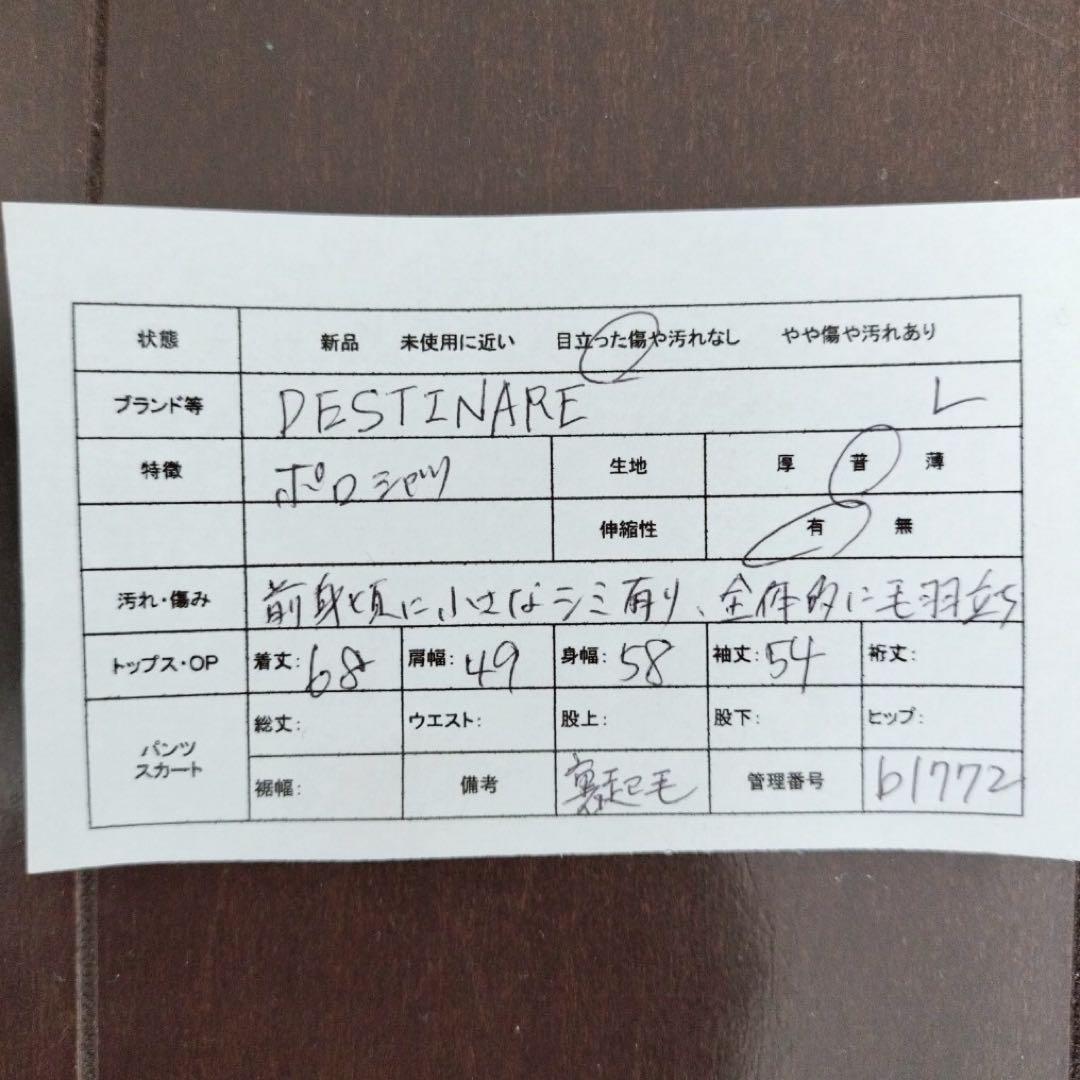 状態 新品 未使用に近い 目立った傷や汚れなし やや傷や汚れあり
ブランド等 DESTINARE L
特徴 ポロシャツ 生地 厚 普 薄
伸縮性 有 無
汚れ・傷み 前身頃に小さなシミ有り、全体的に毛羽立ち
トップス・OP 着丈: 68 肩幅: 49 身幅: 58 袖丈: 54 裄丈:
パンツ スカート 総丈: ウエスト: 股上: 股下: ヒップ:
裾幅: 備考 裏起毛 管理番号 b1772